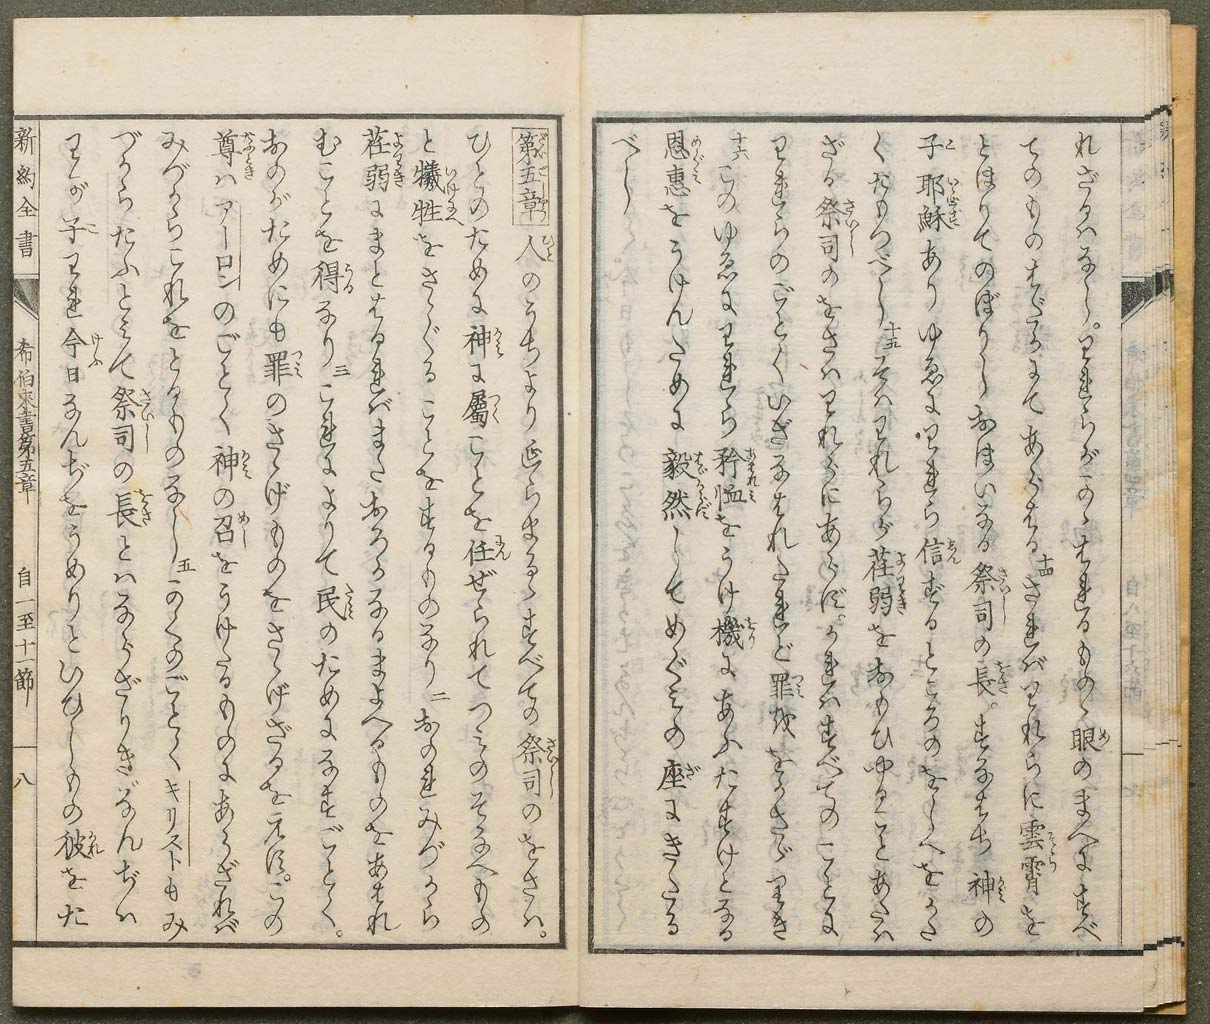 れざるはなし。われらがかゝはれるものゝ眼のまへにすべ
てのものはだかにてあらはる十四されバわれらに雲霄を
とほりてのぼりしおほいなる祭司の長。すなはち神の
子耶穌ありゆゑにわれら信ずるところのをしへをかた
くたもつべし十五そはわれらが荏弱をおもひやることあたは
ざる祭司のをさはわれらにあらず。かれはすべてのことに
われらのごとくいざなはれたれど罪状ををかさゞりき
十六このゆゑにわれら矜恤をうけ機にあふたすけとなる
恩惠をうけんために毅然してめぐみの座にきたる
べし
第五章 人のうちより延らまるゝすべての祭司のをさは。
ひとのために神に屬ことを任ぜられてつみのそなへもの
と犧牲をさゝぐることをするものなり二おのれみづから
荏弱にまとはるればまたおろかなるまよへるものをあはれ
むことを得なり三これによりて民のためになすごとく。
おのがためにも罪のさゝげものをさゝげざるをえず。この
尊はアーロンのごとく神の召をうけたるものにあらざれバ
みづからこれをとるものなし五かくのごとくキリストもみ
づからたふとみて祭司の長とハならざりきなんぢハ
わが子われ今日なんぢをうめりといひしもの彼をた
新約全書
希伯來書第五章
自一至十一節
八